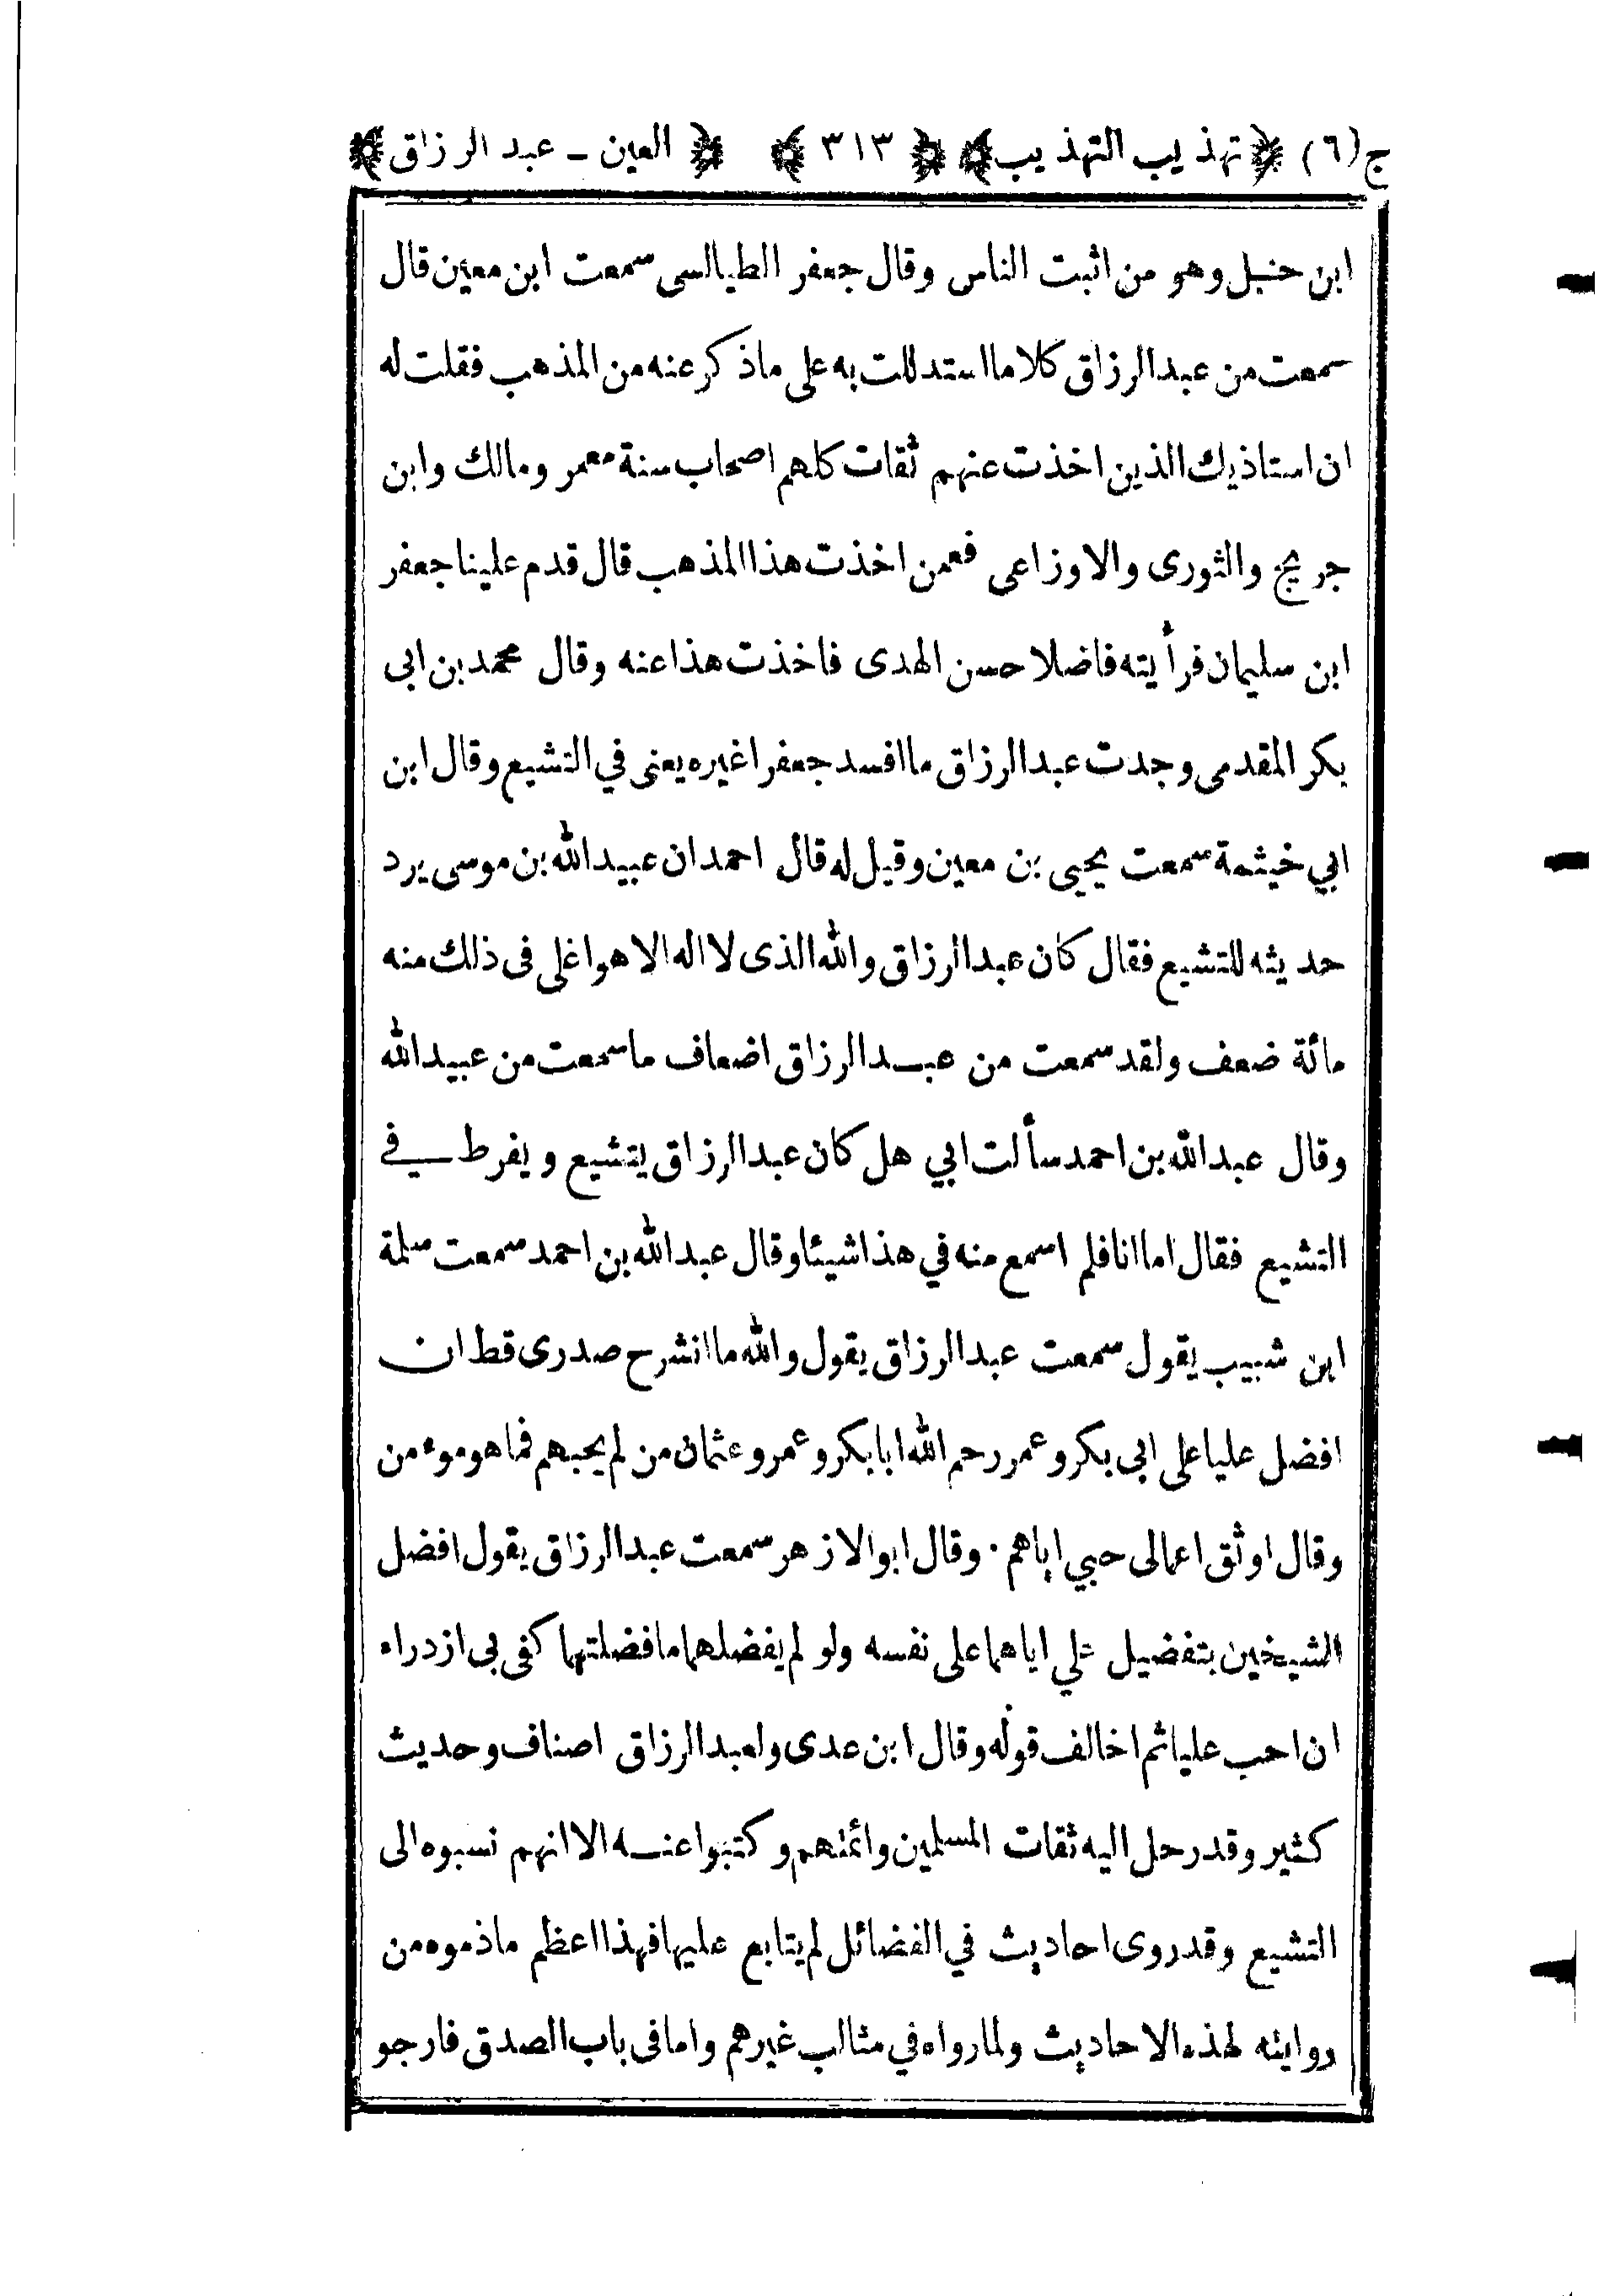 ج(٦) ﴿تهذيب التهذيب﴾ ﴿٣١٣﴾ ﴿العين ـ عبد الرزاق﴾
ابن حنبل وهو من اثبت الناس وقال جعفر الطيالسى سمعت ابن معين قال
سمعت من عبد الرزاق كلاما استدللت به على ماذكر عنه من المذهب فقلت له
ان استاذيك الذين اخذت عنهم ثقات كلهم اصحاب سنة معمر ومالك وابن
جريج والثورى والاوزاعى فعمن اخذت هذا المذهب قال قدم علينا جعفر
ابن سليمان فرأيته فاضلا حسن الهدى فاخذت هذا عنه وقال محمد بن ابى
بكر المقدمى وجدت عبد الرزاق ما افسد جعفرا غيره يعنى في التشيع وقال ابن
ابي خيثمة سمعت يحيى بن معين وقيل له قال احمد ان عبيد الله بن موسى يرد
حديثه للتشيع فقال كان عبد الرزاق والله الذى لا اله الا هو اغلى فى ذلك منه
مائة ضعف ولقد سمعت من عبد الرزاق اضعاف ما سمعت من عبيد الله
وقال عبد الله بن احمد سألت ابي هل كان عبد الرزاق يتشيع ويفرط في
التشيع فقال اما انا فلم اسمع منه في هذا شيئا وقال عبد الله بن احمد سمعت سلمة
ابن شبيب يقول سمعت عبد الرزاق يقول والله ما انشرح صدرى قط ان
افضل عليا على ابى بكر وعمر رحم الله ابا بكر وعمر وعثمان من لم يحبهم فما هو موءمن
وقال اوثق اعمالى حبي اياهم · وقال ابو الازهر سمعت عبد الرزاق يقول افضل
الشيخين بتفضيل علي اياهما على نفسه ولو لم يفضلهما ما فضلتهما كفى بى ازدراء
ان احب عليا ثم اخالف قوله وقال ابن عدى ولعبد الرزاق اصناف وحديث
كثير وقد رحل اليه ثقات المسلمين وائمتهم وكتبوا عنه الا انهم نسبوه الى
التشيع وقد روى احاديث في الفضائل لم يتابع عليها فهذا اعظم ماذموه من
روايته لهذه الاحاديث ولما رواه في مثالب غيرهم واما فى باب الصدق فارجو